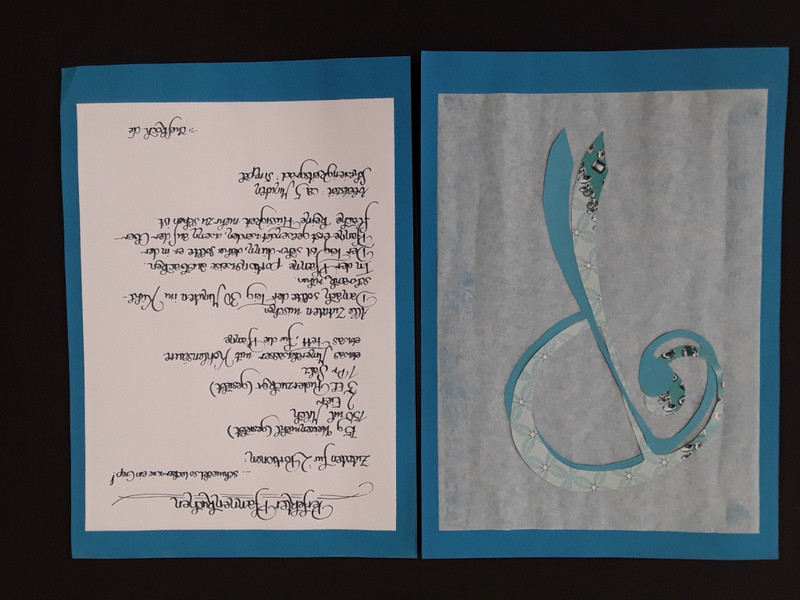 Perfekter Pfannenkuchen
... schmeckt so lecker wie ein Crêp!
Zutaten für 2 Portionen:
75 g Weizenmehl (gesiebt)
150 ml Milch
2 Eier
3 EL Puderzucker (gesiebt)
1 Pr Salz
etwas Mineralwasser mit Kohlensäure
etwas Fett, für die Pfanne
Alle Zutaten mischen
Danach sollte der Teig 30 Minuten im Kühl-
schrank ruhen
In der Pfanne portionsweise ausbacken.
Der Teig ist sehr dünn, daher sollte er in der
Pfanne erst gewendet werden, wenn auf der Ober-
fläche keine Flüssigkeit mehr zu sehen ist
Arbeitszeit ca. 5 Minuten,
Schwierigkeitsgrad: simpel
> chefkoch.de